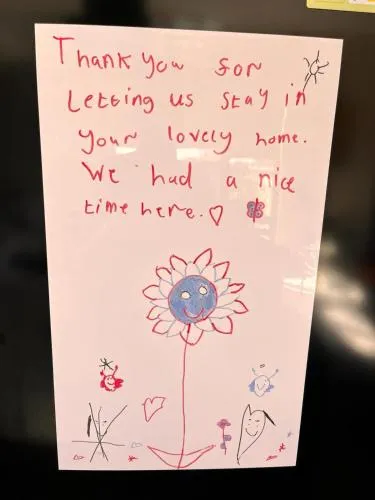 Thank you for
Letting us stay in
your lovely home.
We had a nice
time here. ♡